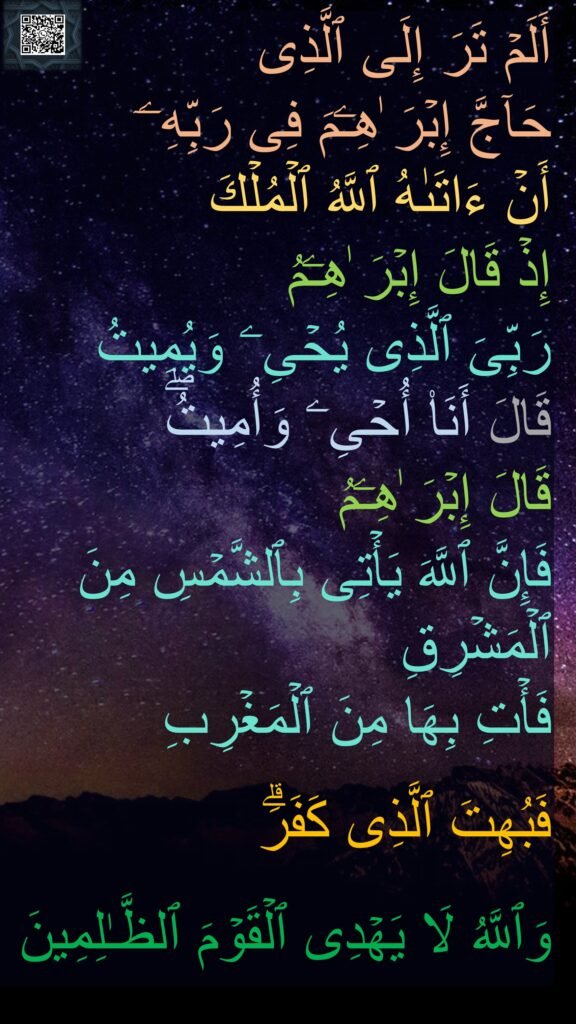 أَلَمۡ تَرَ إِلَى ٱلَّذِی
حَاۤجَّ إِبۡرَ ٰهِـۧمَ فِی رَبِّهِۦۤ
أَنۡ ءَاتَىٰهُ ٱللَّهُ ٱلۡمُلۡكَ
إِذۡ قَالَ إِبۡرَ ٰهِـۧمُ
رَبِّیَ ٱلَّذِی یُحۡیِۦ وَیُمِیتُ
قَالَ أَنَا۠ أُحۡیِۦ وَأُمِیتُۖ
قَالَ إِبۡرَ ٰهِـۧمُ
فَإِنَّ ٱللَّهَ یَأۡتِی بِٱلشَّمۡسِ مِنَ
ٱلۡمَشۡرِقِ
فَأۡتِ بِهَا مِنَ ٱلۡمَغۡرِبِ
فَبُهِتَ ٱلَّذِی كَفَرَۗ
وَٱللَّهُ لَا یَهۡدِی ٱلۡقَوۡمَ ٱلظَّـٰلِمِینَ